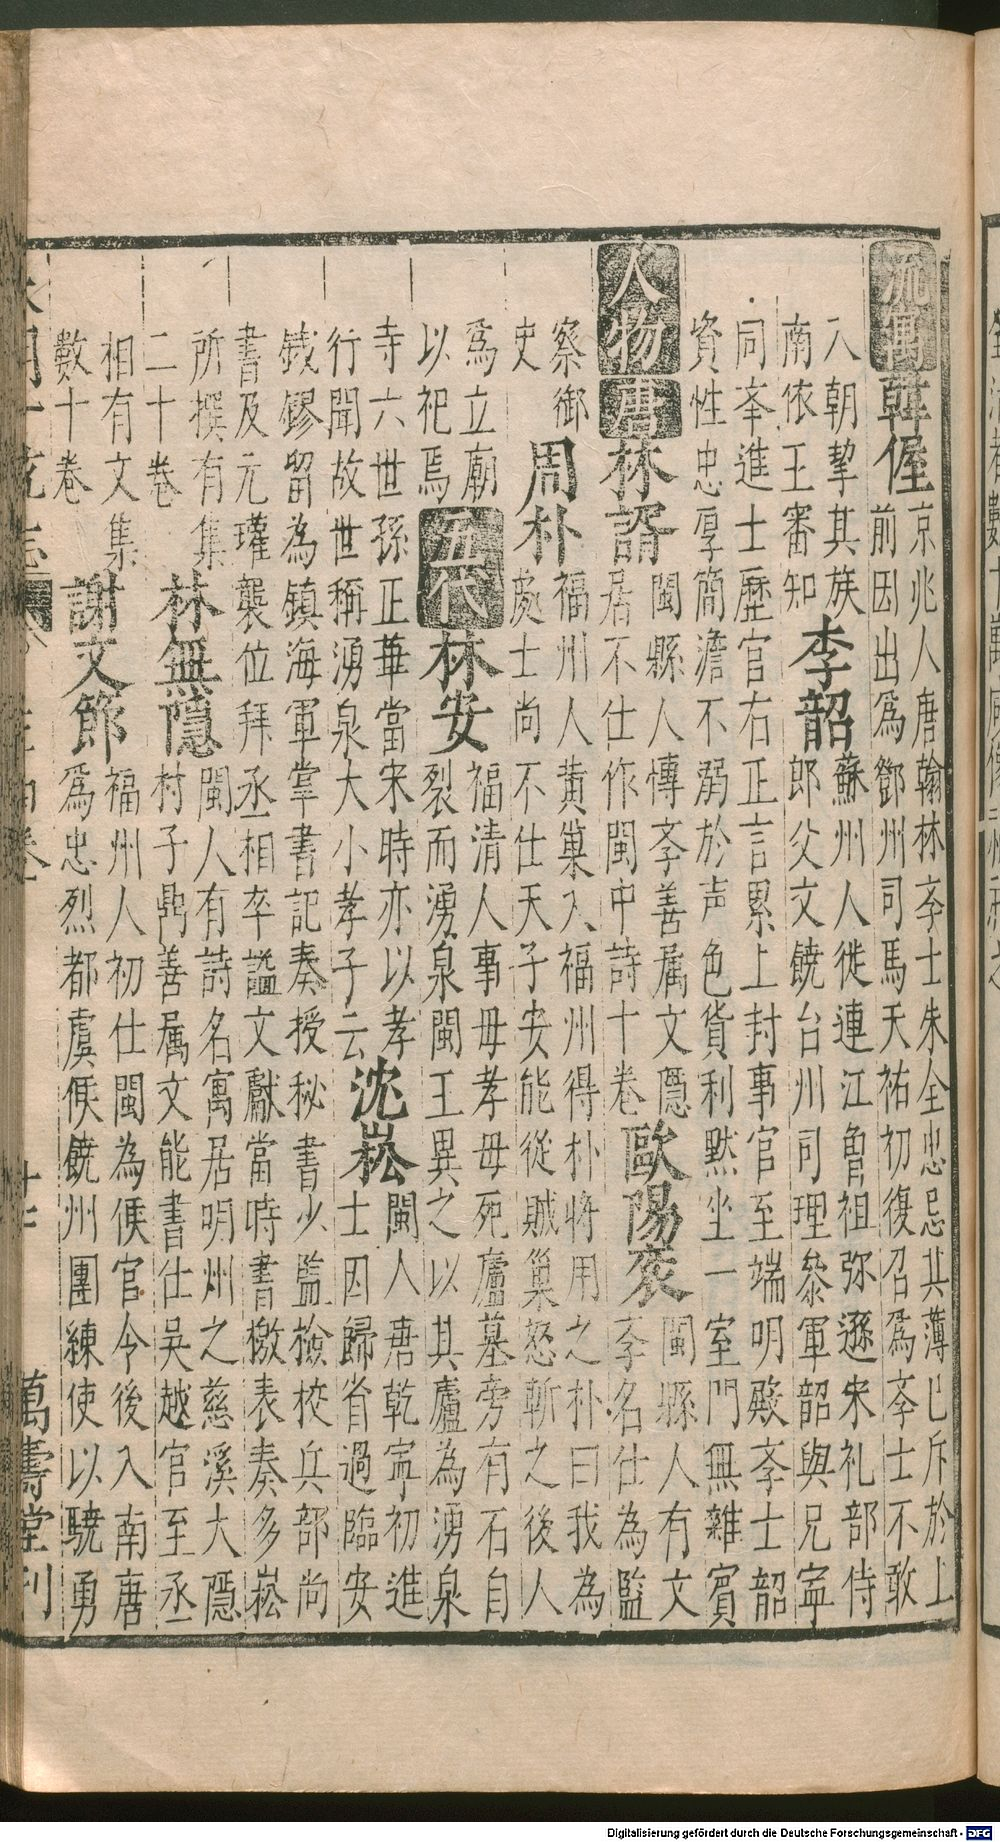 流寓韓偓京兆人唐翰林斈士朱全忠忌其薄已斥於上
前因出爲鄧州司馬天祐初復召爲斈士不敢
入朝挈其族
南依王審知
李韶蘇州人徙連江曾祖弥遜宋礼部侍
郎父文饒台州司理叅軍韶與兄寕
同斈進士歷官右正言累上封事官至端明殿斈士韶
資性忠厚簡澹不溺於声色貨利黙坐一室門無雜賓
人物唐林諝閩縣人慱斈善属文隱
居不仕作閩中詩十卷
歐陽衮閩縣人有文
斈名仕為監
察御
史
周朴福州人黄巢入福州得朴將用之朴曰我為
處士尚不仕天子安能從賊巢怒斬之後人
爲立廟
以祀焉
五代林安福清人事母孝母死廬墓旁有石自
裂而湧泉閩王異之以其廬為湧泉
寺六世孫正華當宋時亦以孝
行聞故世稱湧泉大小孝子云
沈崧閩人唐乾寕初進
士因歸省過臨安
錢鏐留為鎮海軍掌書記奏授秘書少監檢校兵部尚
書及元瓘襲位拜丞相卒謚文獻當時書檄表奏多崧
所撰有集
二十卷
林無隱閩人有詩名寓居明州之慈溪大隱
村子鼎善属文能書仕吳越官至丞
相有文集
數十卷
謝文節福州人初仕閩為侯官令後入南唐
爲忠烈都虞候饒州團練使以驍勇
萬壽堂刊
Digitalisierung gefördert durch die Deutsche Forschungsgemeinschaft - DFG